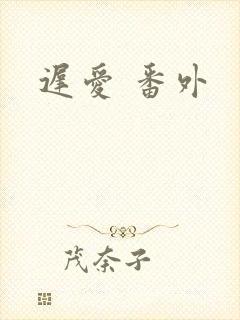 遲愛 番外
茂奈子